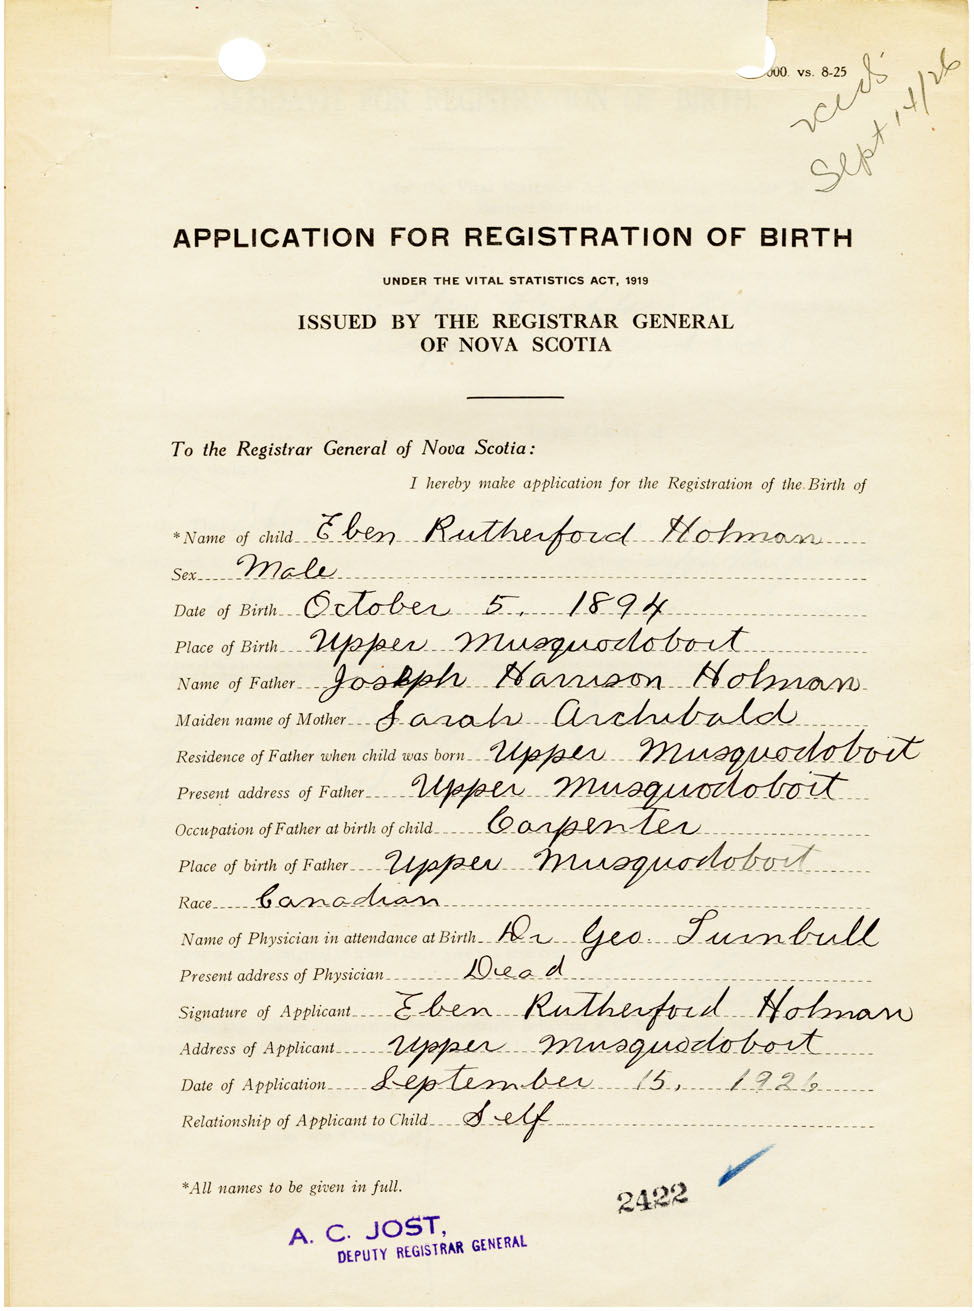 000. vs. 8-25
rec'd
Sept 14/26
APPLICATION FOR REGISTRATION OF BIRTH
UNDER THE VITAL STATISTICS ACT, 1919
ISSUED BY THE REGISTRAR GENERAL
OF NOVA SCOTIA
To the Registrar General of Nova Scotia:
I hereby make application for the Registration of the Birth of
*Name of child Eben Rutherford Holman
Sex Male
Date of Birth October 5, 1894
Place of Birth Upper Musquodoboit
Name of Father Joseph Harrison Holman
Maiden name of Mother Sarah Archibald
Residence of Father when child was born Upper Musquodoboit
Present address of Father Upper Musquodoboit
Occupation of Father at birth of child Carpenter
Place of birth of Father Upper Musquodoboit
Race Canadian
Name of Physician in attendance at Birth Dr Geo. Turnbull
Present address of Physician Dead
Signature of Applicant Eben Rutherford Holman
Address of Applicant Upper Musquodoboit
Date of Application September 15, 1926
Relationship of Applicant to Child Self
*All names to be given in full.
2422
A. C. JOST,
DEPUTY REGISTRAR GENERAL